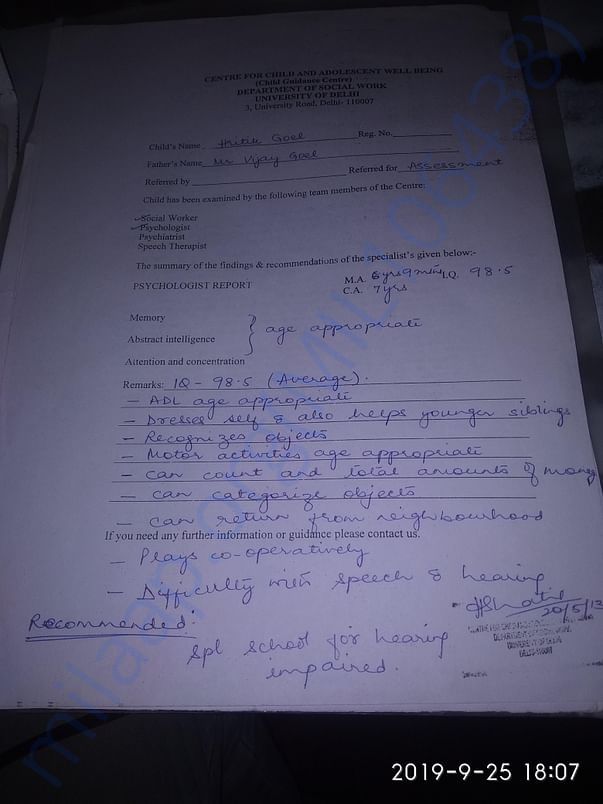 CENTRE FOR CHILD AND ADOLESCENT WELL BEING
(Child Guidance Centre)
DEPARTMENT OF SOCIAL WORK
UNIVERSITY OF DELHI
3, University Road, Delhi- 110007
Child's Name Hritik Goel Reg. No.
Father's Name Mr Vijay Goel
Referred by Referred for Assessment
Child has been examined by the following team members of the Centre:
Social Worker
Psychologist
Psychiatrist
Speech Therapist
The summary of the findings & recommendations of the specialist's given below:-
PSYCHOLOGIST REPORT M.A. 6yrs 9 mths I.Q. 98.5
C.A. 7yrs
Memory
Abstract intelligence } age appropriate
Attention and concentration
Remarks: IQ - 98.5 (Average).
- ADL age appropriate
- Dresses self & also helps younger siblings
- Recognizes objects
- Motor activities age appropriate
- can count and total amounts of money
- can categorize objects
- can return from neighbourhood
If you need any further information or guidance please contact us.
- Plays co-operatively
- Difficulty with speech & hearing
20/5/13
CENTRE FOR CHILD
DEPARTMENT OF SOCIAL WORK
UNIVERSITY OF DELHI
DELHI-110007
Recommended:
Spl school for hearing
impaired.
2019-9-25 18:07